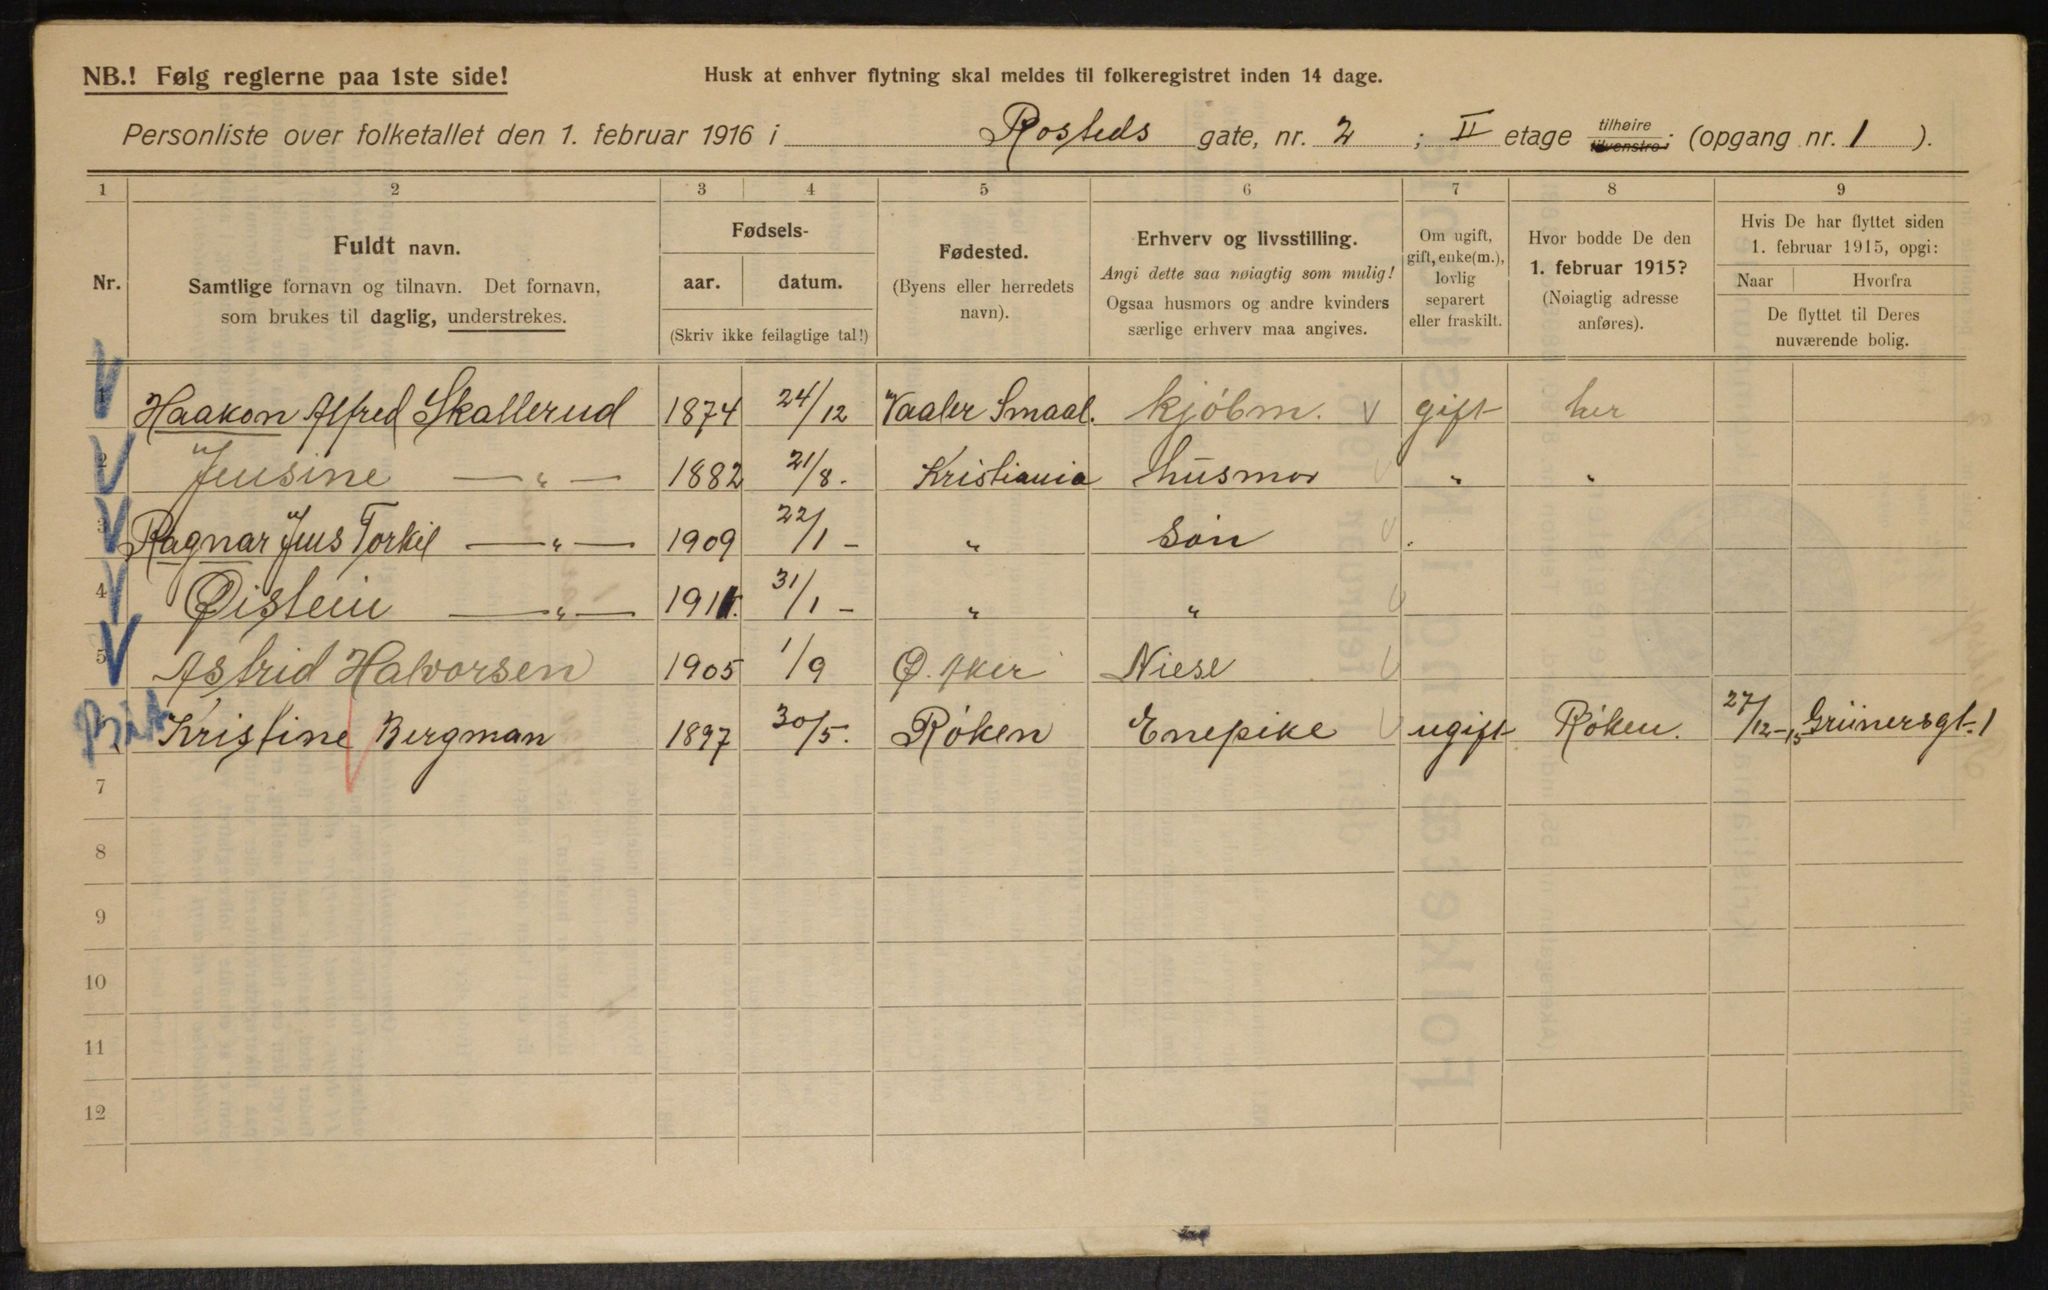 NB.! Følg reglerne paa 1ste side!
Husk at enhver flytning skal meldes til folkeregistret inden 14 dage.
Personliste over folketallet den 1. februar 1916 i Rosteds gate, nr. 2 ; II etage tilhøire tilvenstre: (opgang nr. 1 ).
1 2 3 4 5 6 7 8 9
Nr.
Fuldt navn.
Samtlige fornavn og tilnavn. Det fornavn,
som brukes til daglig, understrekes.
Fødsels-
aar. datum.
(Skriv ikke feilagtige tal!)
Fødested.
(Byens eller herredets
navn).
Erhverv og livsstilling.
Angi dette saa nøiagtig som mulig!
Ogsaa husmors og andre kvinders
særlige erhverv maa angives.
Om ugift,
gift, enke(m.),
lovlig
separert
eller fraskilt.
Hvor bodde De den
1. februar 1915?
(Nøiagtig adresse
anføres).
Hvis De har flyttet siden
1. februar 1915, opgi:
Naar Hvorfra
De flyttet til Deres
nuværende bolig.
1 Haakon Alfred Skallerud 1874 24/12 Vaaler Smaal. kjøbm. V gift her
2 Jensine — „ — 1882 21/8. Kristiania husmor V „ „
3 Ragnar Jens Torkil — „ — 1909 22/1 – „ Søn V .
4 Øistein — „ — 1911. 31/1 – „ „ V
5 Astrid Halvorsen 1905 1/9 Ø. Aker Niese V
Kristine Bergman 1897 30/5. Røken Enepike V ugift Røken. 27/12–15 Grünersgt. 1
7
8
9
10
11
12